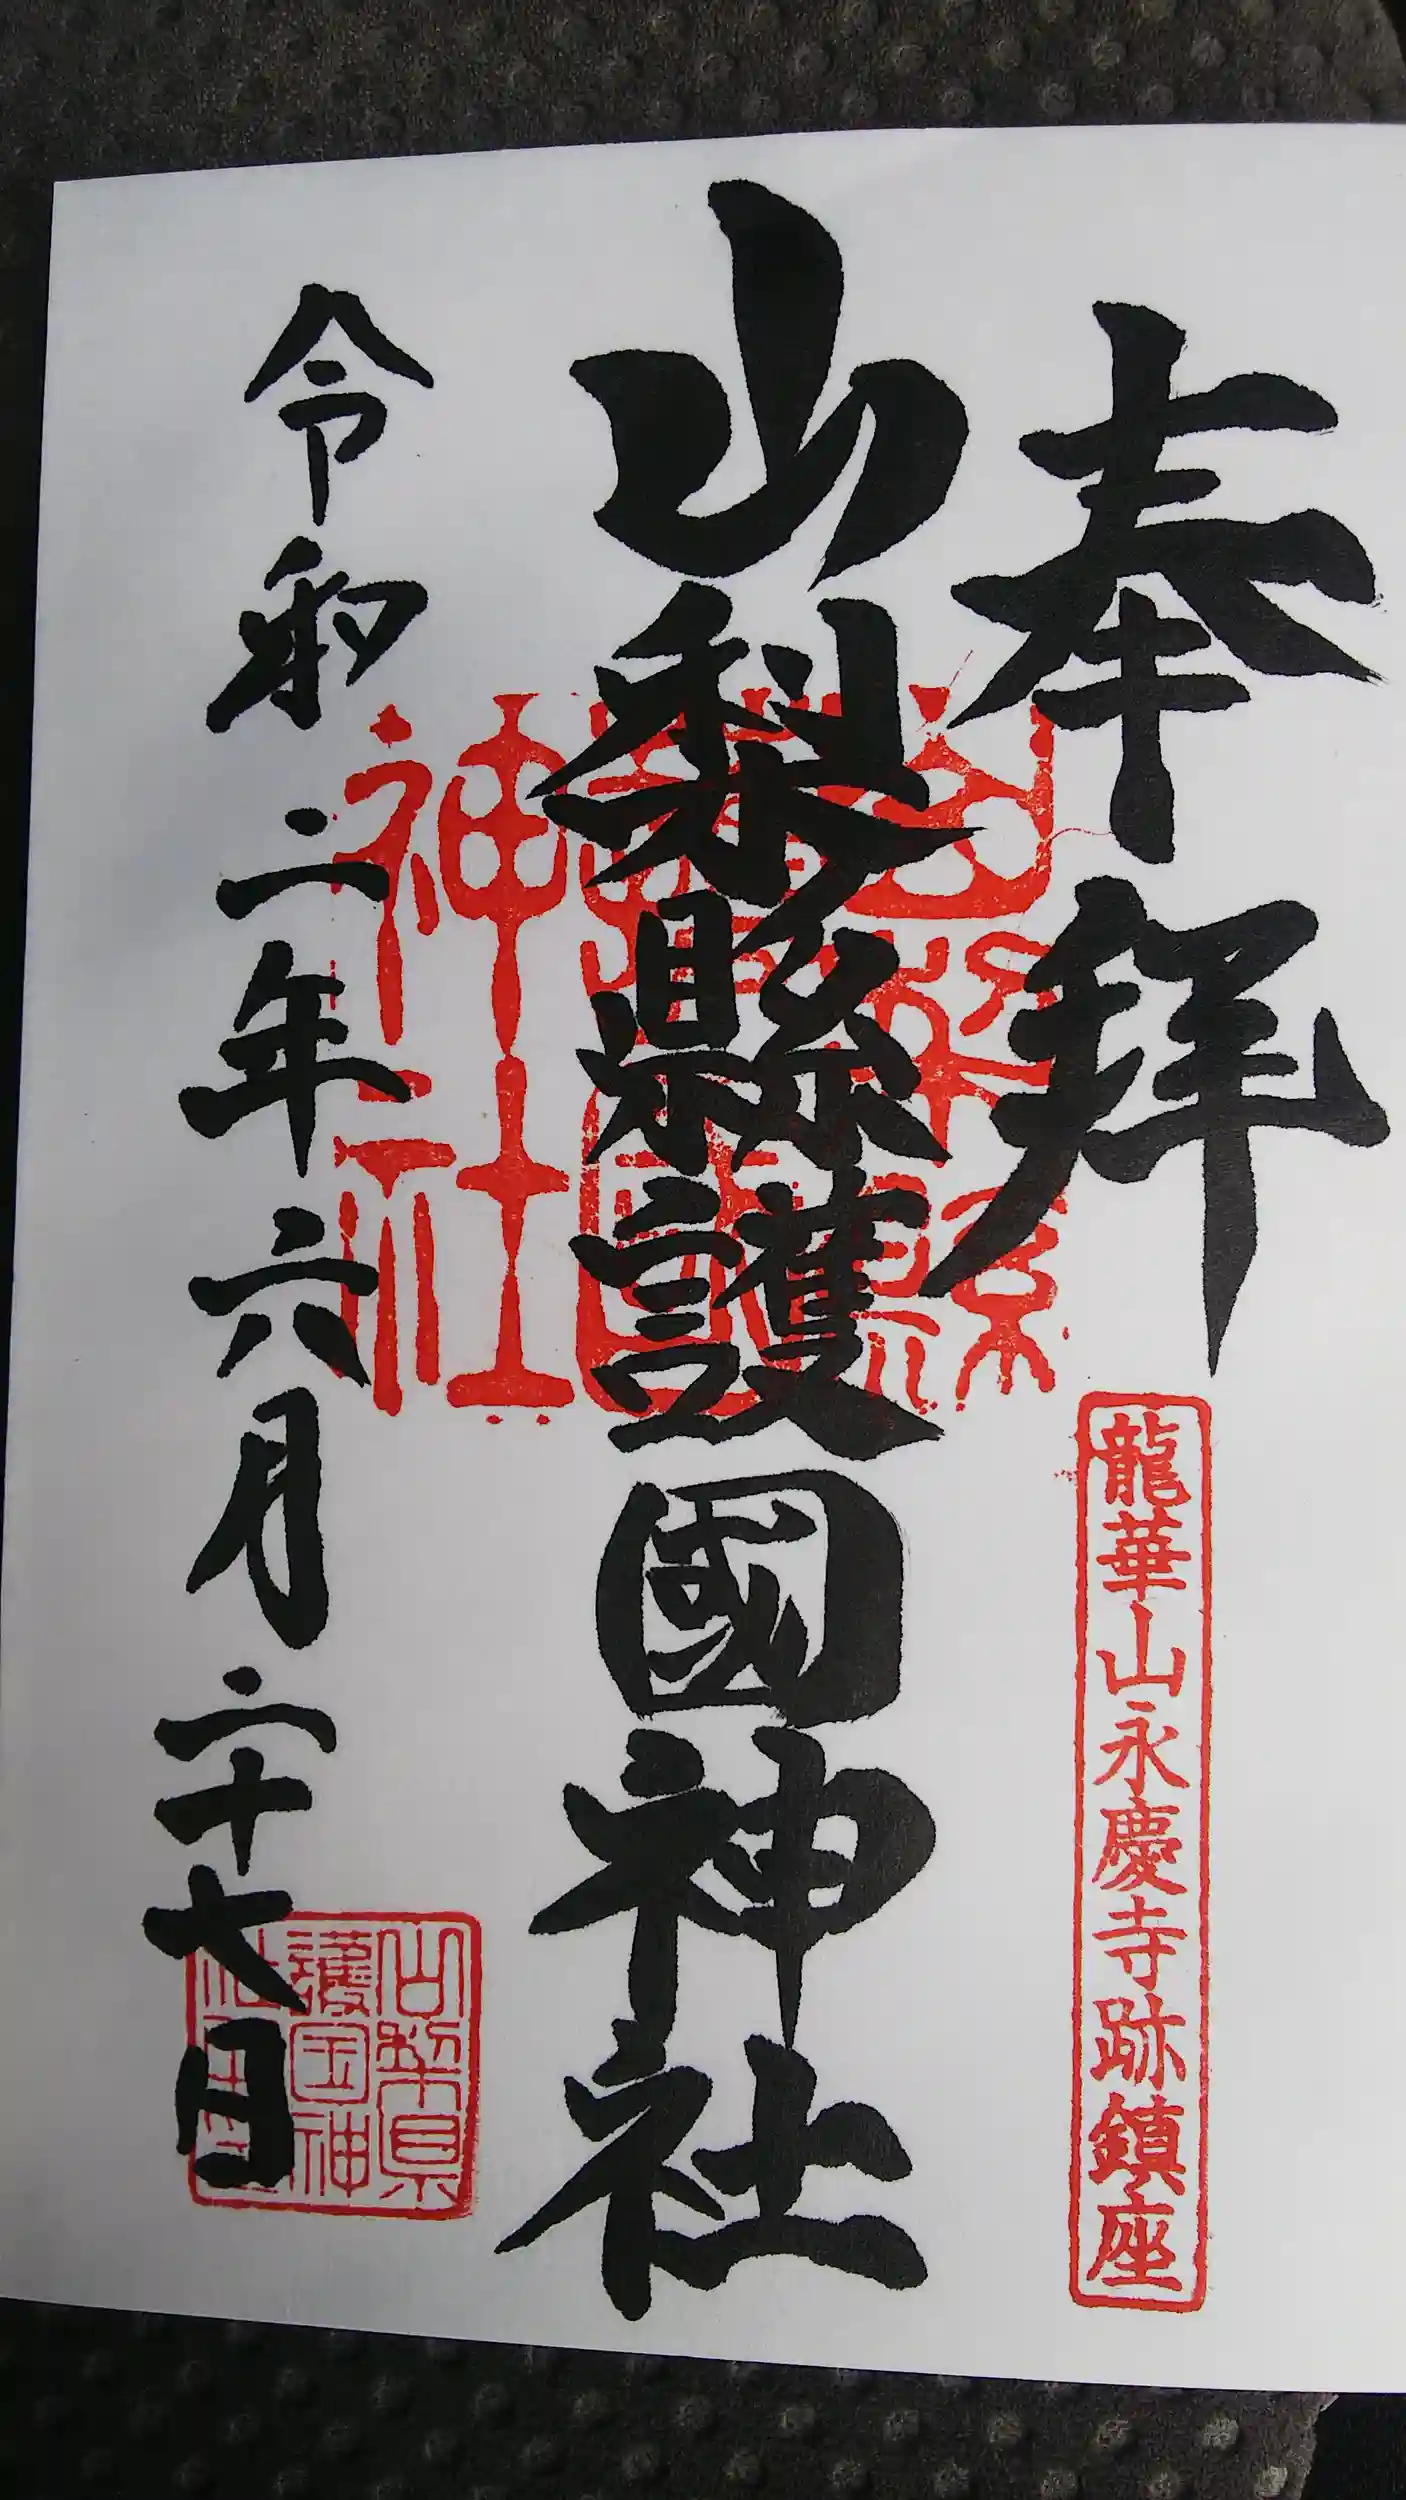 奉拝
龍華山永慶寺跡鎮座
山梨縣護國神社
山梨縣
護國
神社
令和二年六月二十七日
山梨県
護国神
社